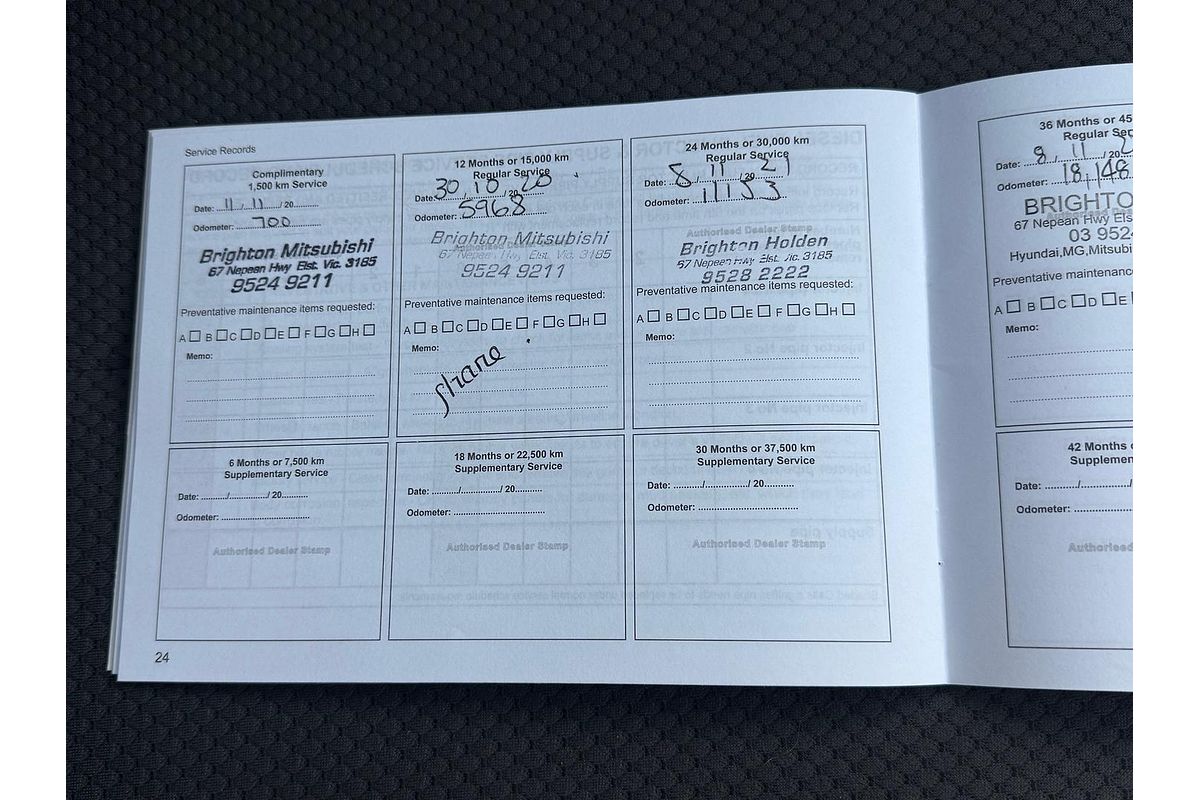 Service Records
Complimentary
1,500 km Service
Date: 11 / 11 / 20
Odometer: 700
Brighton Mitsubishi
67 Nepean Hwy Elst. Vic. 3185
9524 9211
Preventative maintenance items requested:
A B C D E F G H
Memo:
12 Months or 15,000 km
Regular Service
Date: 30 / 10 / 20 20
Odometer: 5968
Authorised Dealer Stamp
Brighton Mitsubishi
67 Nepean Hwy Elst. Vic. 3185
9524 9211
Preventative maintenance items requested:
A B C D E F G H
Memo:
Shane
24 Months or 30,000 km
Regular Service
Date: 8 / 11 / 20 21
Odometer: 11153
Authorised Dealer Stamp
Brighton Holden
67 Nepean Hwy Elst. Vic. 3185
9528 2222
Preventative maintenance items requested:
A B C D E F G H
Memo:
36 Months or 45
Regular Ser
Date: 8 / 11 / 20
Odometer: 18,148
BRIGHTO
67 Nepean Hwy Els
03 952
Hyundai,MG,Mitsubi
Preventative maintenance
A B C D E
Memo:
6 Months or 7,500 km
Supplementary Service
Date: ........../............../ 20..........
Odometer: ................................
Authorised Dealer Stamp
18 Months or 22,500 km
Supplementary Service
Date: ........../............../ 20..........
Odometer: ................................
Authorised Dealer Stamp
30 Months or 37,500 km
Supplementary Service
Date: ........../............../ 20..........
Odometer: ................................
Authorised Dealer Stamp
42 Months
Supplemen
Date: ........../............../
Odometer: ....................
Authorised
24